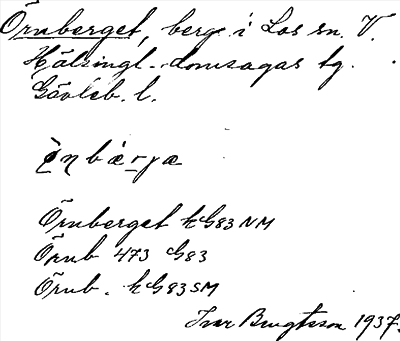 Örnberget, berg i Los sn. V.
Hälsingl. domsagas tg.
Gävleb. l.
Örnberget kG83NM
Örnb 473 G83
Örnb. kG83SM
Ivar Bengtsson 1937.